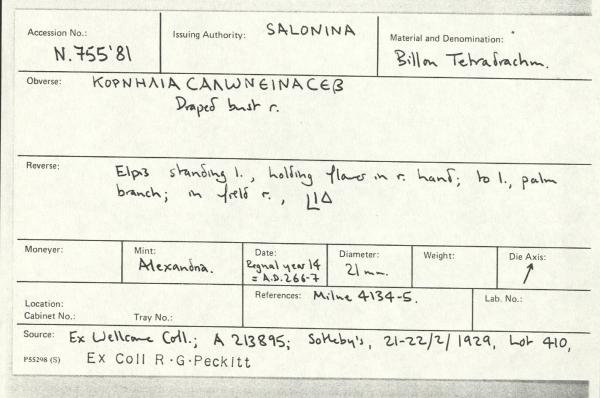 Accession No.: N.755'81
Issuing Authority: SALONINA
Material and Denomination: Billon Tetradrachm.
Obverse: ΚΟΡΝΗΛΙΑ CΑΛWΝΕΙΝΑCΕΒ
Draped bust r.
Reverse: Elpis standing l., holding flower in r. hand; to l., palm
branch; in field r., LΙΔ
Moneyer:
Mint: Alexandria.
Date: Regnal year 14
= A.D. 266-7
Diameter: 21 mm.
Weight:
Die Axis: ↑
Location:
Cabinet No.: Tray No.:
References: Milne 4134-5.
Lab. No.:
Source: Ex Wellcome Coll.; A 213895; Sotheby's, 21-22/2/1929, Lot 410,
P55298 (S) Ex Coll R.G.Peckitt